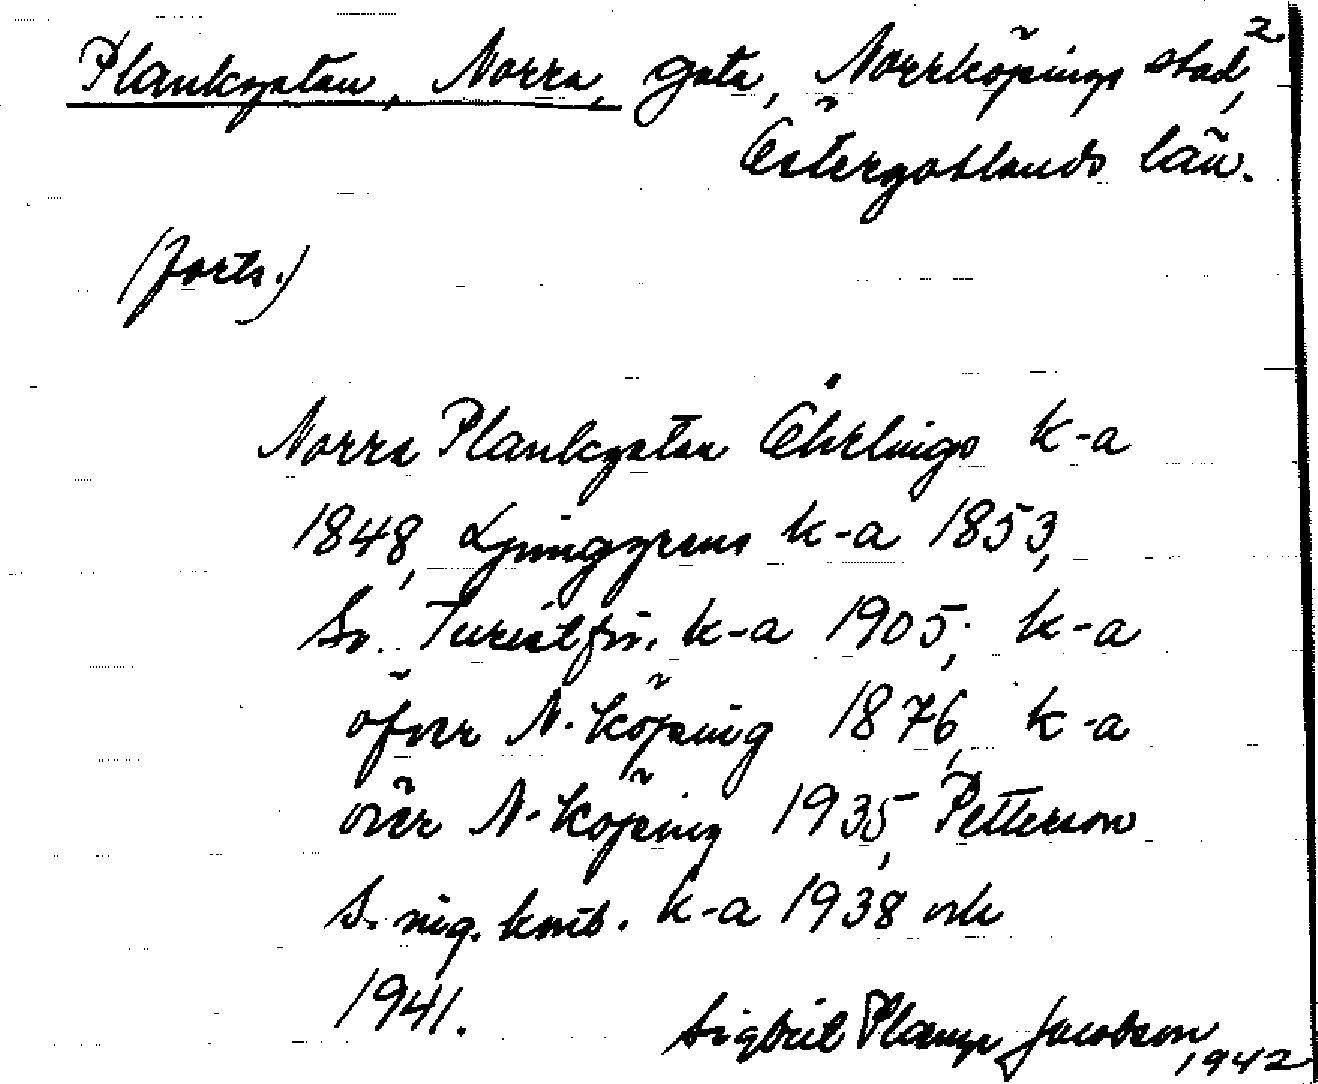 Plankgatan, Norra, gata, Norrköpings stad, 2
Östergötlands län.
(forts.)
Norra Plankgatan Öhrlings k-a
1848, Ljunggrens k-a 1853,
Sv. Turistför. k-a 1905; k-a
öfver N-köping 1876, k-a
över N-köping 1935, Petterson
S. k-a 1938 och
1941.
Sigbrit Plænge Jacobson
1942